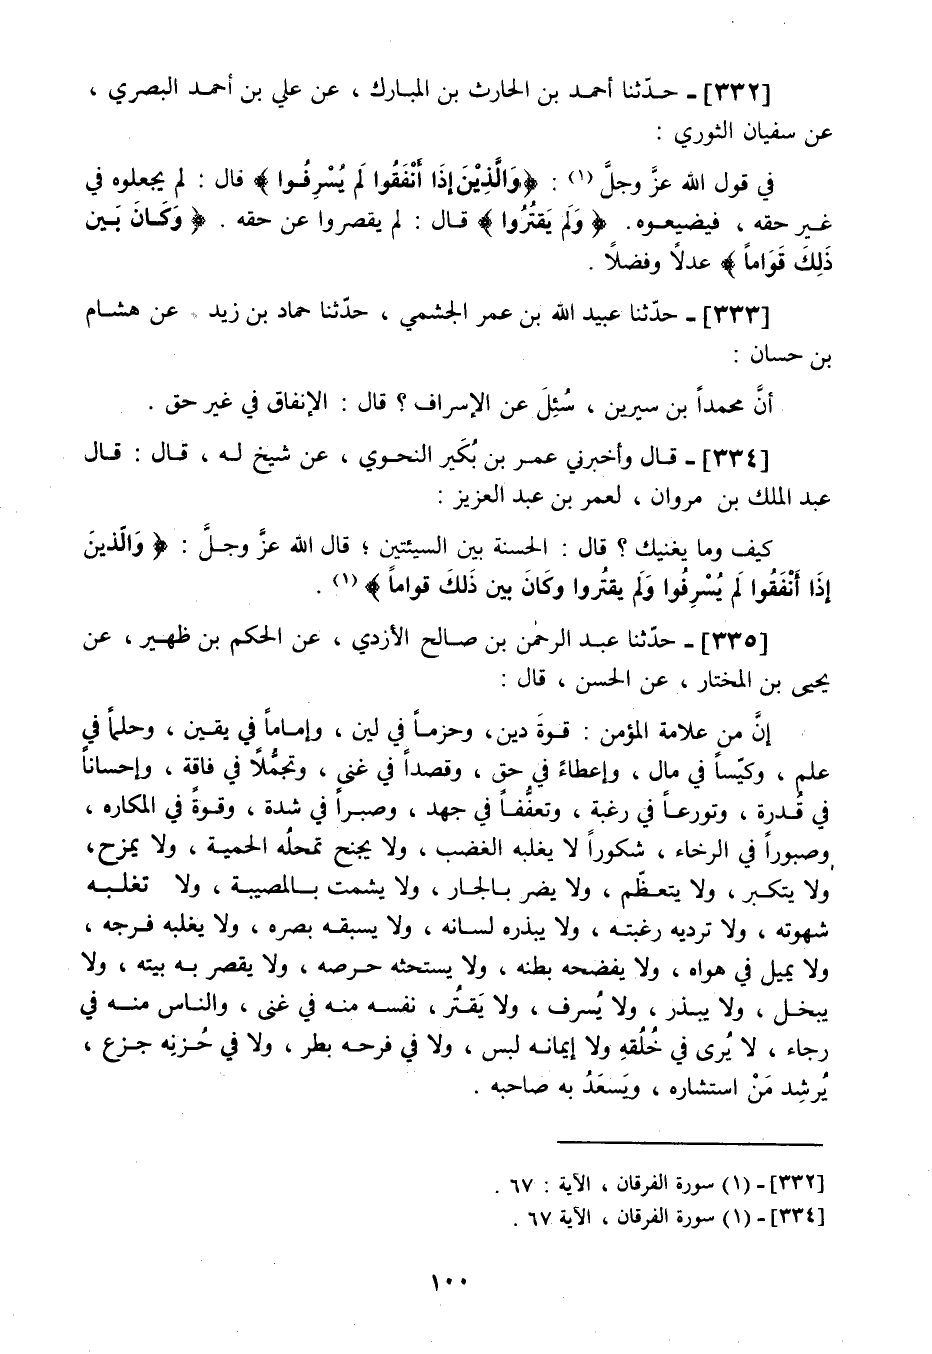 [٣٣٢] ـ حدّثنا أحمد بن الحارث بن المبارك ، عن علي بن أحمد البصري ،
عن سفيان الثوري :
في قول الله عزَّ وجلَّ (١) : ﴿وَالَّذِيْنَ إذَا أَنْفَقُوا لَم يُسْرِفُوا ﴾ قال : لم يجعلوه في
غير حقه ، فيضيعوه. ﴿ وَلَم يَقْتُرُوا ﴾ قال : لم يقصروا عن حقه . ﴿ وَكَانَ بَين
ذَلِكَ قَوَاماً ﴾ عدلاً وفضلاً .
[٣٣٣] ـ حدّثنا عبيد الله بن عمر الجشمي ، حدّثنا حماد بن زيد ، عن هشام
بن حسان :
أنَّ محمداً بن سيرين ، سُئِلَ عن الإسراف ؟ قال : الإنفاق في غير حق .
[٣٣٤] ـ قال وأخبرني عمر بن بُكَير النحوي ، عن شيخ له ، قال : قال
عبد الملك بن مروان ، لعمر بن عبد العزيز :
كيف وما يغنيك ؟ قال : الحسنة بين السيئتين ؛ قال الله عزَّ وجلَّ : ﴿ وَالّذينَ
إذَا أَنْفَقُوا لَم يُسْرِفُوا وَلَم يقتُروا وكَانَ بين ذَلكَ قواماً ﴾ (١) .
[٣٣٥] ـ حدّثنا عبد الرحمٰن بن صالح الأزدي ، عن الحكم بن ظهير ، عن
يحيى بن المختار ، عن الحسن ، قال :
إنَّ من علامة المؤمن : قوةَ دين، وحزماً في لين ، وإماماً في يقين ، وحلماً في
علم ، وكيّساً في مال ، وإعطاءً في حق ، وقصداً في غنى ، وتجمُّلاً في فاقة ، وإحساناً
في قُدرة ، وتورعاً في رغبة ، وتعفُّفاً في جهد ، وصبراً في شدة ، وقوةً في المكاره ،
وصبوراً في الرخاء ، شكوراً لا يغلبه الغضب ، ولا يجنح تمحلُه الحمية ، ولا يمزح،
ولا يتكبر ، ولا يتعظّم ، ولا يضر بالجار ، ولا يشمت بالمصيبة ، ولا تغلبه
شهوته ، ولا ترديه رغبته ، ولا يبذره لسانه ، ولا يسبقه بصره ، ولا يغلبه فرجه ،
ولا يميل في هواه ، ولا يفضحه بطنه ، ولا يستحثه حرصه ، ولا يقصر به بيته ، ولا
يبخل ، ولا يبذر ، ولا يُسرف ، ولا يَقتُر ، نفسه منه في غنى ، والناس منه في
رجاء ، لا يُرى في خُلُقهِ ولا إيمانه لبس ، ولا في فرحه بطر ، ولا في حُزنِه جزع ،
يُرشِد مَنْ استشاره ، ويَسعَدُ به صاحبه .
[٣٣٢] ـ (١) سورة الفرقان ، الآية : ٦٧ .
[٣٣٤] ـ (١) سورة الفرقان ، الآية ٦٧ .
١٠٠